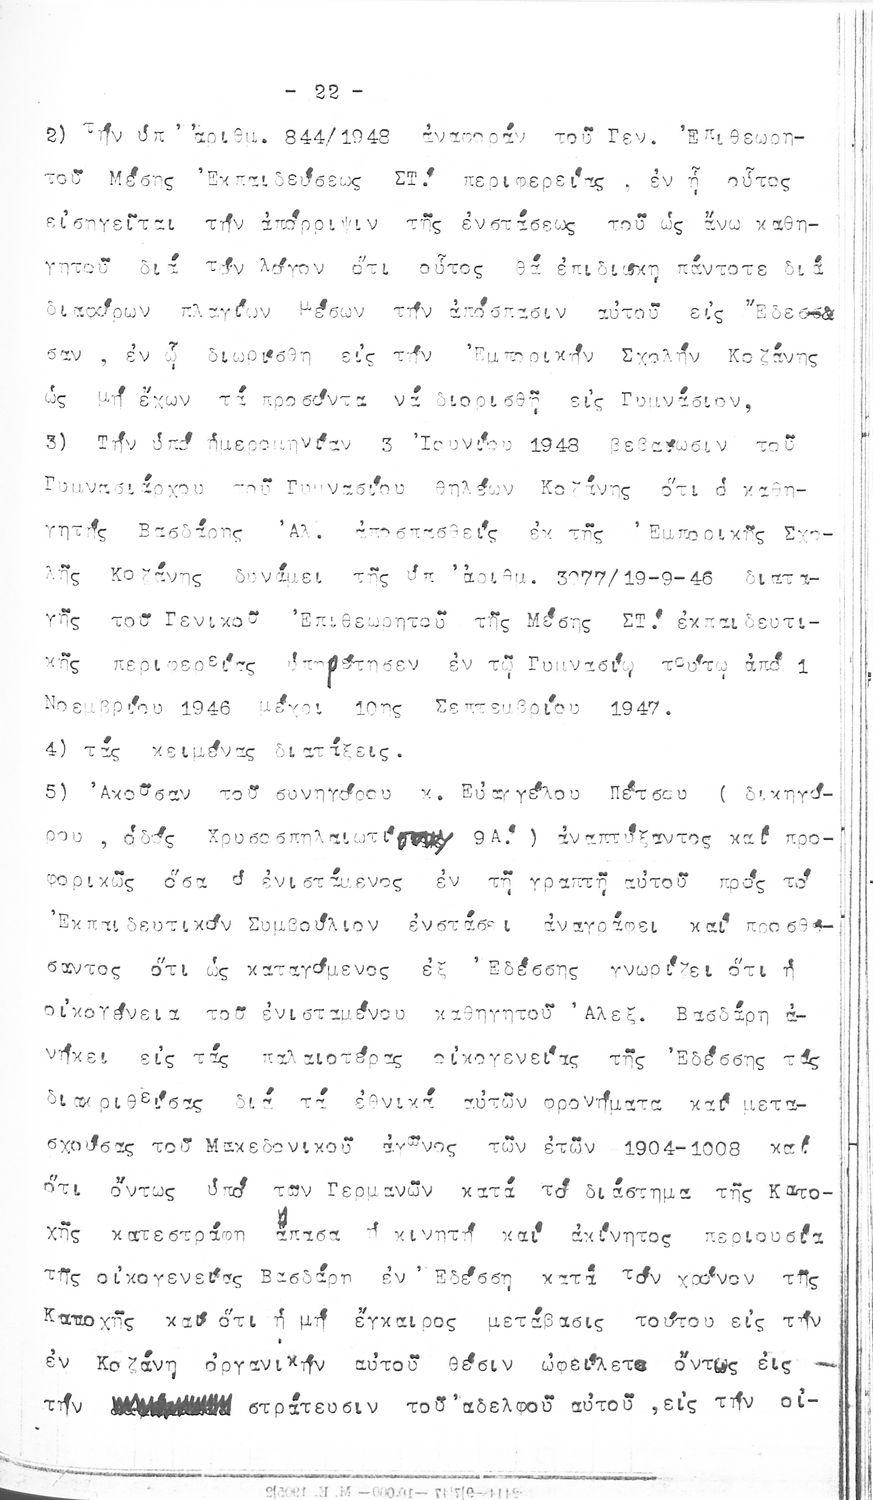 - 22 -
2) Τήν ὑπ' ἀριθμ. 844/1948 ἀναφοράν τοῦ Γεν. Ἐπιθεωρη-
τοῦ Μέσης Ἐκπαιδεύσεως ΣΤ! περιφερείας , ἐν ᾗ οὗτος
εἰσηγεῖται τήν ἀπόρριψιν τῆς ἐνστάσεως τοῦ ὡς ἄνω καθη-
γητοῦ διά τόν λόγον ὅτι οὗτος θά ἐπιδιώκη πάντοτε διά
διαφόρων πλαγίων μέσων τήν ἀπόσπασιν αὐτοῦ εἰς Ἔδεσ
σαν , ἐν ᾧ διωρίσθη εἰς τήν Ἐμπορικήν Σχολήν Κοζάνης
ὡς μή ἔχων τά προσόντα νά διορισθῆ εἰς Γυμνάσιον,
3) Τήν ὑπό ἡμερομηνίαν 3 Ἰουνίου 1948 βεβαίωσιν τοῦ
Γυμνασιάρχου τοῦ Γυμνασίου θηλέων Κοζάνης ὅτι ὁ καθη-
γητής Βασδάρης Ἀλ. ἀποσπασθείς ἐκ τῆς Ἐμπορικῆς Σχο-
λῆς Κοζάνης δυνάμει τῆς ὑπ' ἀριθμ. 3077/19-9-46 διατα-
γῆς τοῦ Γενικοῦ Ἐπιθεωρητοῦ τῆς Μέσης ΣΤ! ἐκπαιδευτι-
κῆς περιφερείας ὑπηρέτησεν ἐν τῷ Γυμνασίῳ τούτῳ ἀπό 1
Νοεμβρίου 1946 μέχρι 10ης Σεπτεμβρίου 1947.
4) τάς κειμένας διατάξεις.
5) Ἀκοῦσαν τοῦ συνηγόρου κ. Εὐαγγέλου Πέτσου ( δικηγό-
ρου , ὁδός Χρυσοσπηλαιωτίσσης 9Α! ) ἀναπτύξαντος καί προ-
φορικῶς ὅσα ὁ ἐνιστάμενος ἐν τῇ γραπτῇ αὐτοῦ πρός τό
Ἐκπαιδευτικόν Συμβούλιον ἐνστάσει ἀναγράφει καί προσθέ-
σαντος ὅτι ὡς καταγόμενος ἐξ Ἐδέσσης γνωρίζει ὅτι ἡ
οἰκογένεια τοῦ ἐνισταμένου καθηγητοῦ Ἀλεξ. Βασδάρη ἀ-
νήκει εἰς τάς παλαιοτέρας οἰκογενείας τῆς Ἐδέσσης τάς
διακριθείσας διά τά ἐθνικά αὐτῶν φρονήματα καί μετα-
σχούσας τοῦ Μακεδονικοῦ ἀγῶνος τῶν ἐτῶν 1904-1008 καί
ὅτι ὄντως ὑπό τῶν Γερμανῶν κατά τό διάστημα τῆς Κατο-
χῆς κατεστράφη ἅπασα ἡ κινητή καί ἀκίνητος περιουσία
τῆς οἰκογενείας Βασδάρη ἐν Ἐδέσση κατά τόν χρόνον τῆς
Κατοχῆς καί ὅτι ἡ μή ἔγκαιρος μετάβασις τούτου εἰς τήν
ἐν Κοζάνη ὀργανικήν αὐτοῦ θέσιν ὠφείλετο ὄντως εἰς
τήν στράτευσιν τοῦ ἀδελφοῦ αὐτοῦ ,εἰς τήν οἰ-